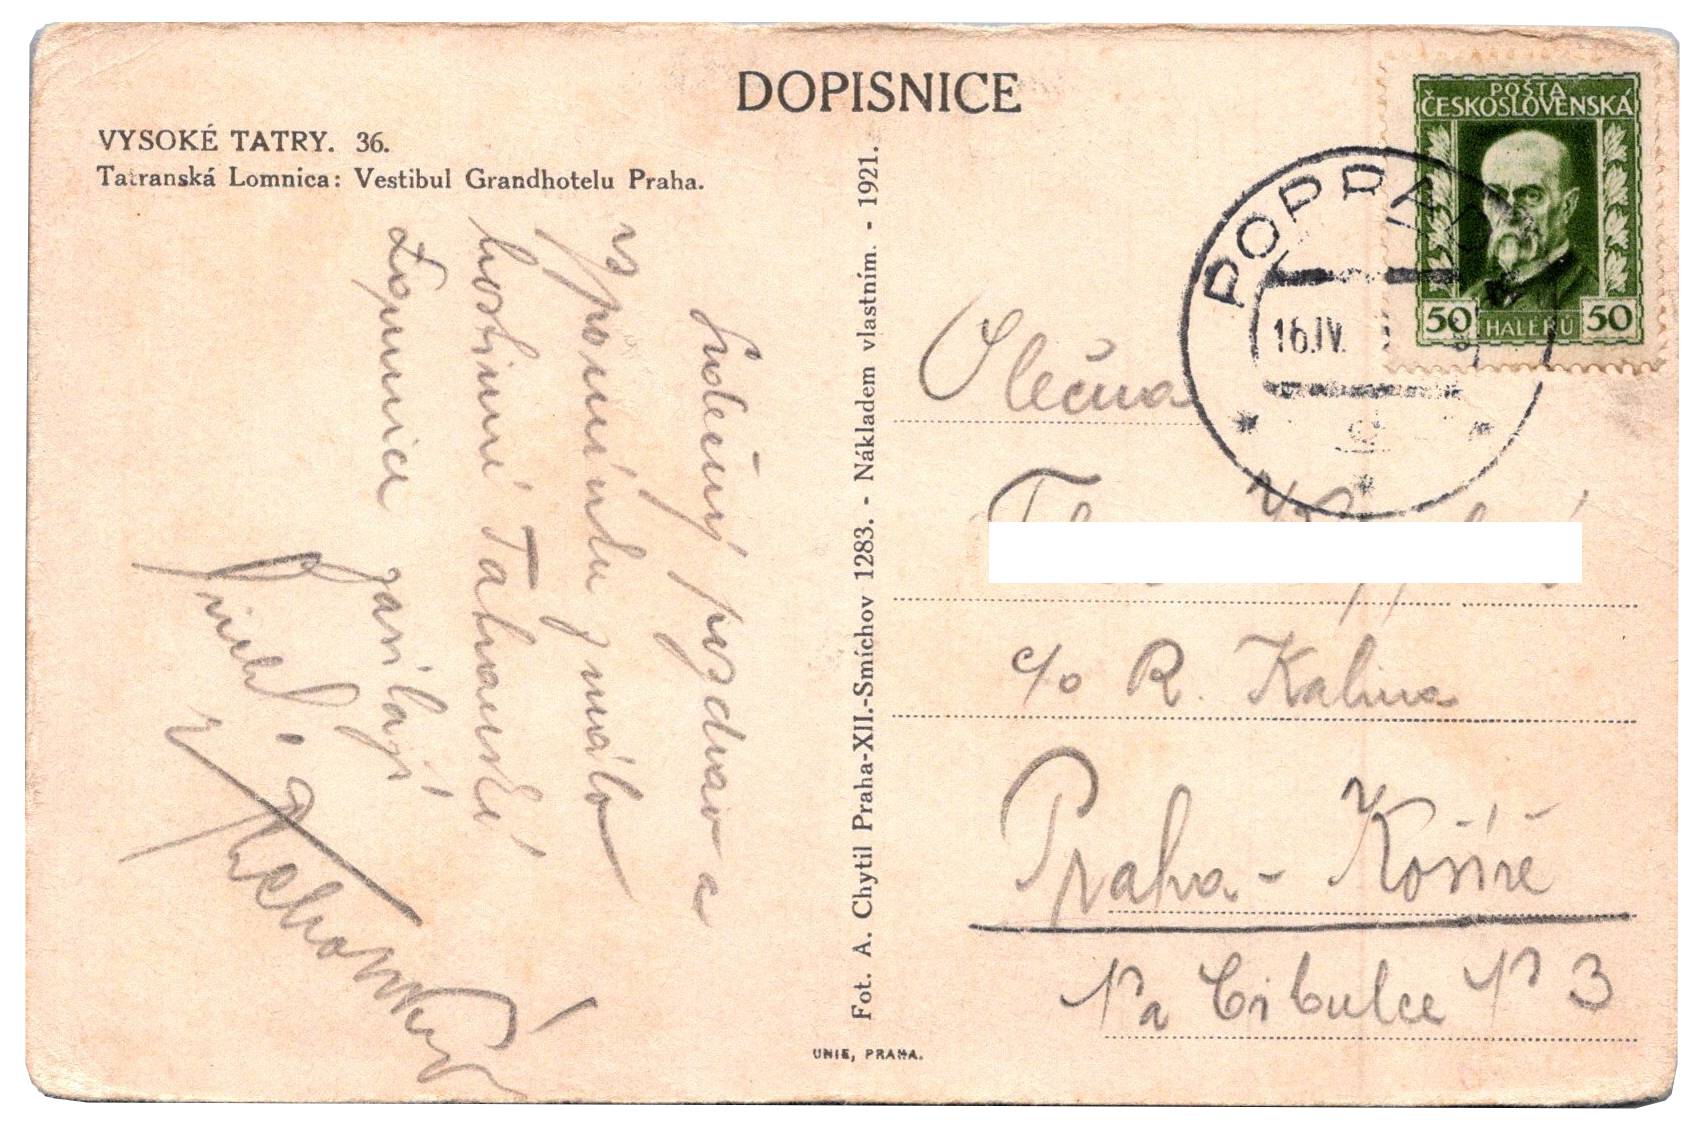 DOPISNICE
VYSOKÉ TATRY. 36.
Tatranská Lomnica: Vestibul Grandhotelu Praha.
Srdečný pozdrav a
vzpomínku z málo
hostinné Tatranské
Lomnice zasílají
Fot. A. Chytil Praha-XII.-Smíchov 1283. - Nákladem vlastním. - 1921.
UNIE, PRAHA.
POŠTA
ČESKOSLOVENSKÁ
50 HALÉŘŮ 50
POPRAD
16.IV.
Slečna
c/o R. Kalina
Praha - Košíře
Na Cibulce № 3